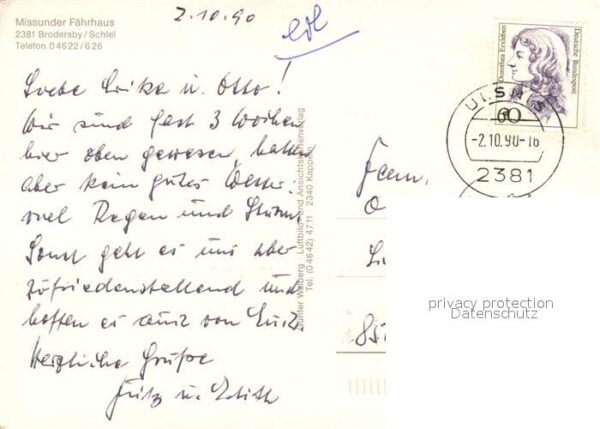 Missunder Fährhaus
2381 Brodersby/Schlei
Telefon 04622/626
2.10.90
erl
Liebe Erika u. Otto!
Wir sind fast 3 Wochen
hier oben gewesen, hatten
aber kein gutes Wetter
viel Regen und Sturm.
Sonst geht es uns aber
zufriedenstellend und
hoffen es auch von Euch
Herzliche Grüße
Fritz u. Edith
Günter Walberg · Luftbild- und Ansichtskartenverlag
Tel. (04642) 4711 · 2340 Kappeln
Dorothea Erxleben
Deutsche Bundespost
60
ULSNIS
-2.10.90-16
2381
Fam.
O
85
privacy protection
Datenschutz